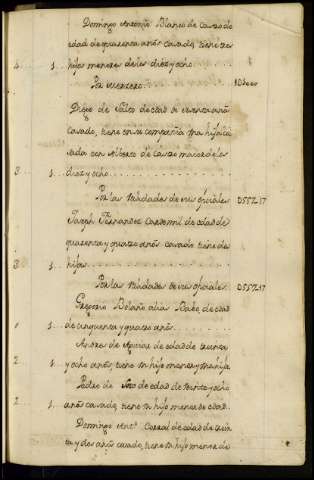 Domingo Antonio Blanco de Castro de
edad de quarenta años casado, tiene tres
4 1 hijos menores de los diez y ocho
Por mercero
Diego de Soto de edad de años
casado, tiene en su compañia una hija ca
sada con Alberto de Castro maior de los
3 1 diez y ocho
Por las utilidades de tres oficiales D552.17
Joseph Fernandez Cardemil de edad de
quarenta y quatro años casado tiene dos
3 1 hijos
Por las utilidades de tres oficiales D552.17
Gregorio Bolaño alias de edad
1 de cinquenta y quatro años
Andres de Aguiar de edad de treinta
2 1 y ocho años, tiene un hijo menor y una hija
Pedro de Soto de edad de treinta y ocho
2 1 años casado, tiene un hijo menor de edad
Domingo Antº Corral de edad de trein
ta y dos años casado, tiene un hijo menor de